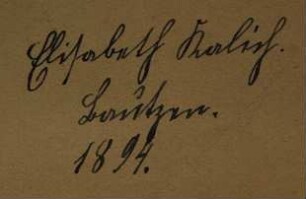 Elisabeth Kalich.
Bautzen.
1894.